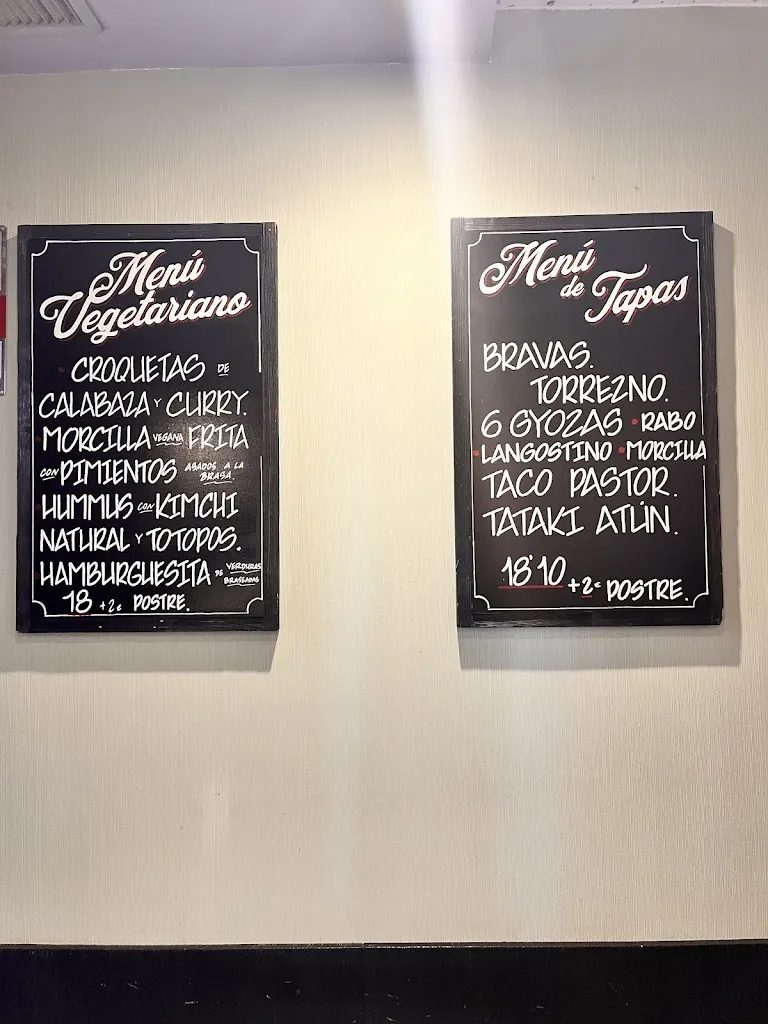 Menú
Vegetariano
CROQUETAS DE
CALABAZA Y CURRY.
MORCILLA VEGANA FRITA
CON PIMIENTOS ASADOS A LA BRASA
HUMMUS CON KIMCHI
NATURAL Y TOTOPOS.
HAMBURGUESITA DE VERDURAS BRASEADAS
18 +2€ POSTRE.
Menú
de Tapas
BRAVAS.
TORREZNO.
6 GYOZAS • RABO
• LANGOSTINO • MORCILLA
TACO PASTOR.
TATAKI ATÚN.
18'10 +2€ POSTRE.